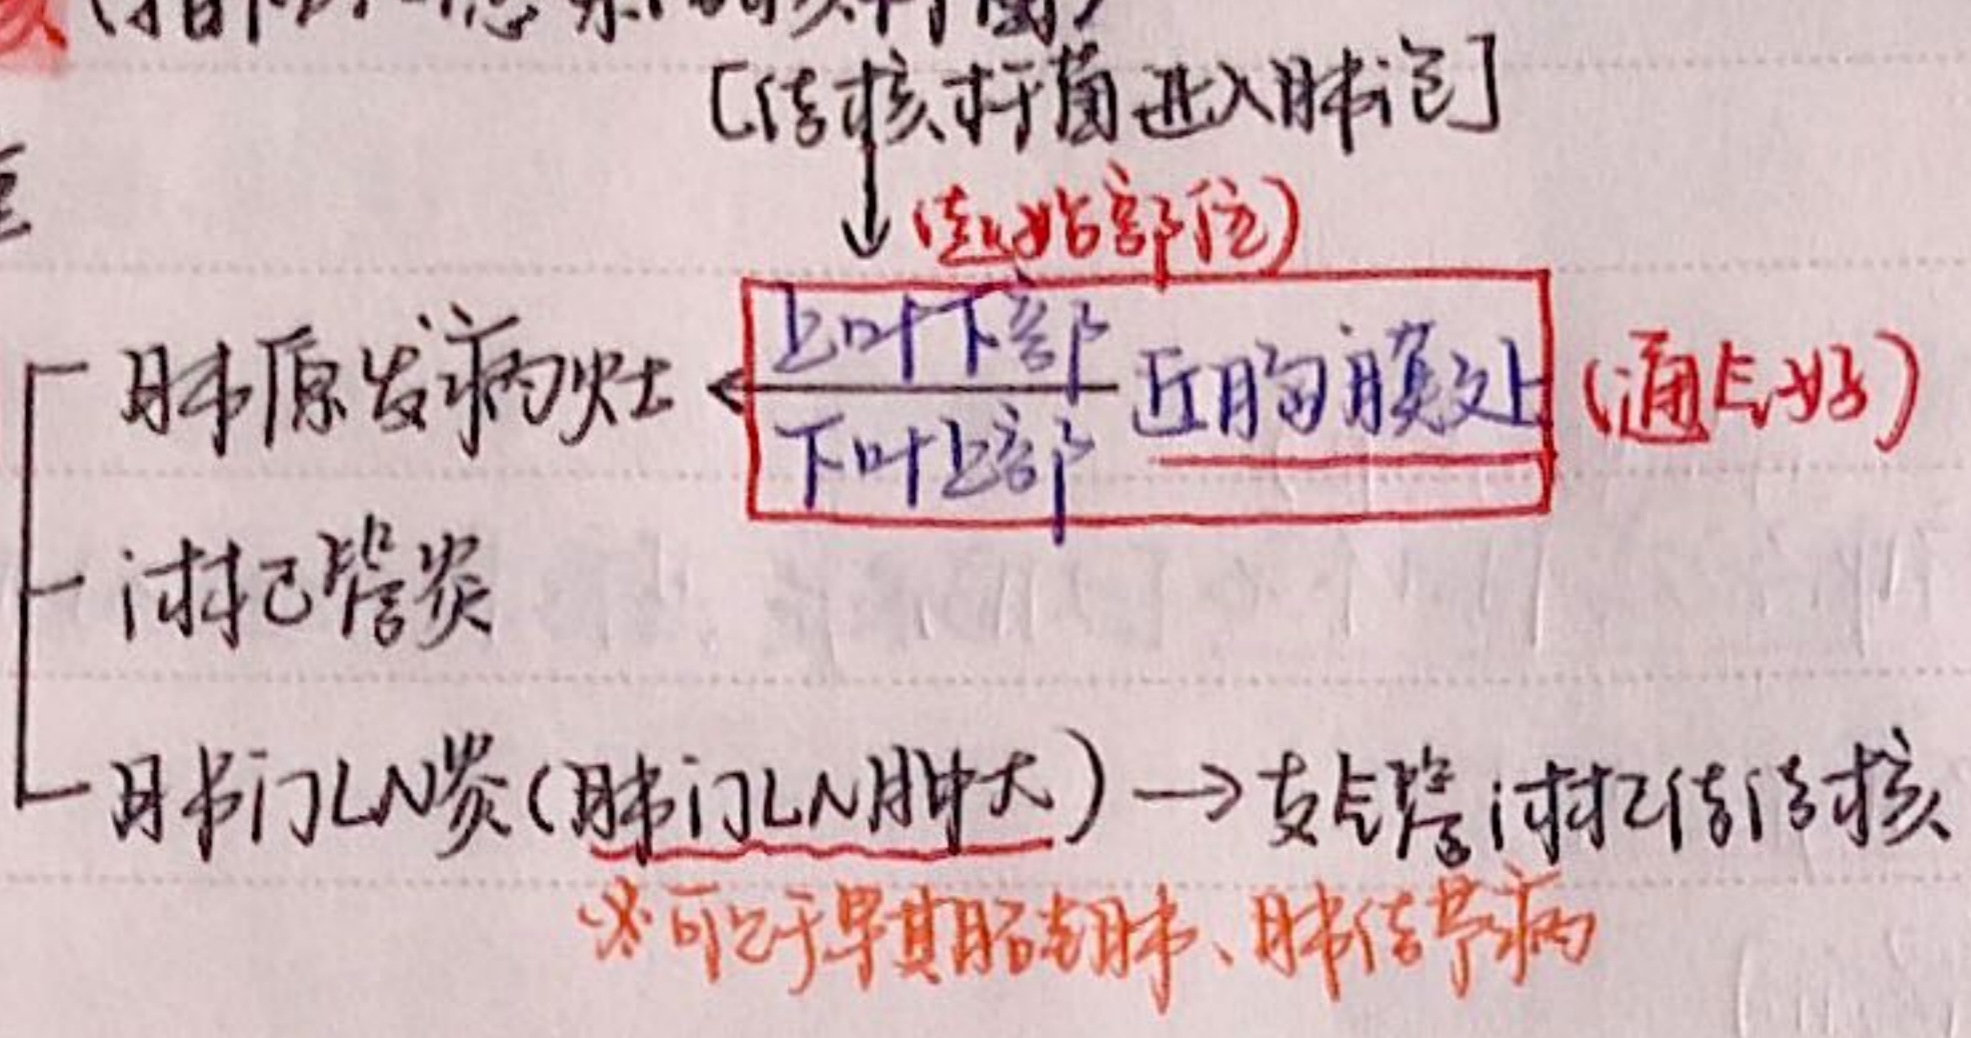 [结核杆菌进入肺泡]
(起始部位)
肺原发病灶 ← 上叶下部 下叶上部 近胸膜处 (通气好)
淋巴管炎
肺门LN炎(肺门LN肿大) → 支气管淋巴结结核
※可见于早期硅肺、肺结节病